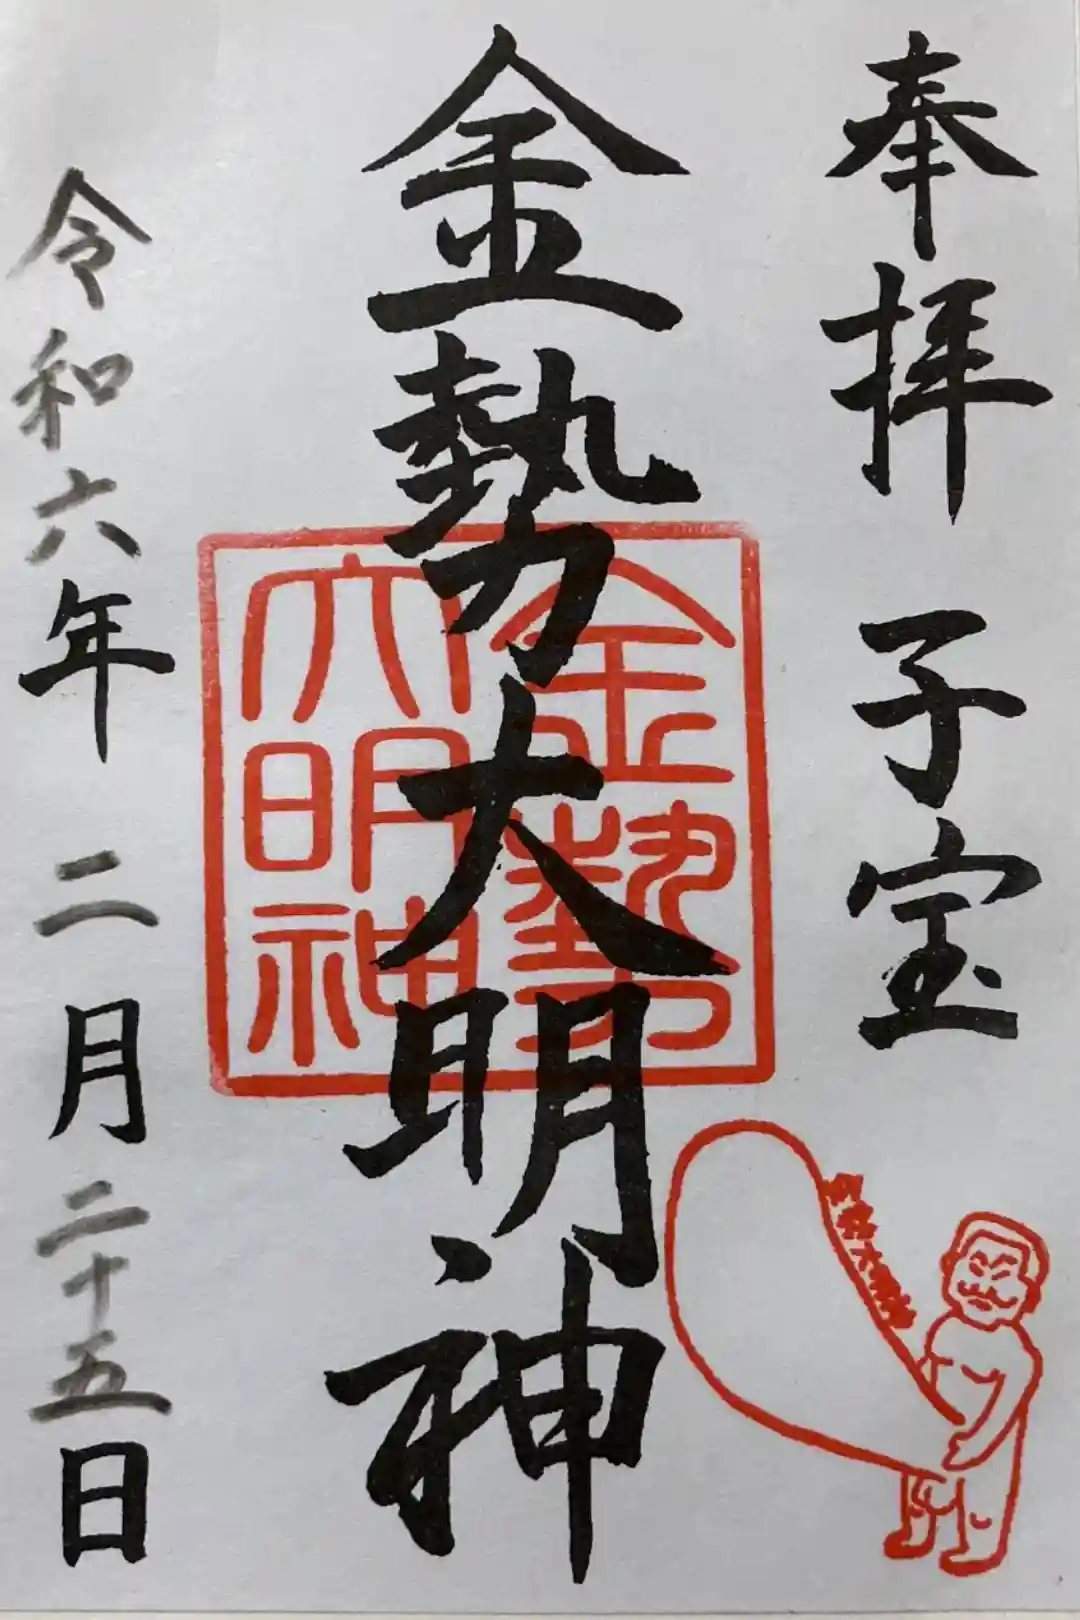 奉拝 子宝
金勢大明神
令和六年 二月 二十五日
金勢
大明神
金勢大明神